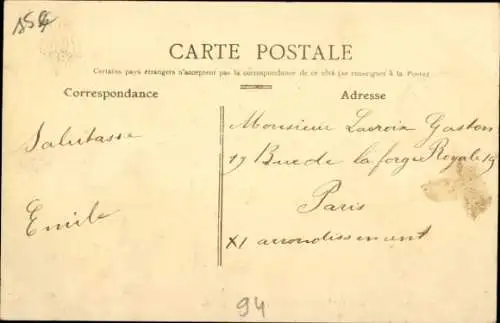 CARTE POSTALE
Certains pays étrangers n'acceptent pas la correspondance de ce côté (se renseigner à la Poste)
Correspondance
Adresse
Salutasse
Emile
Monsieur Lacroix Gaston
19 Rue de la forge Royale 19
Paris
XI arrondissement
94